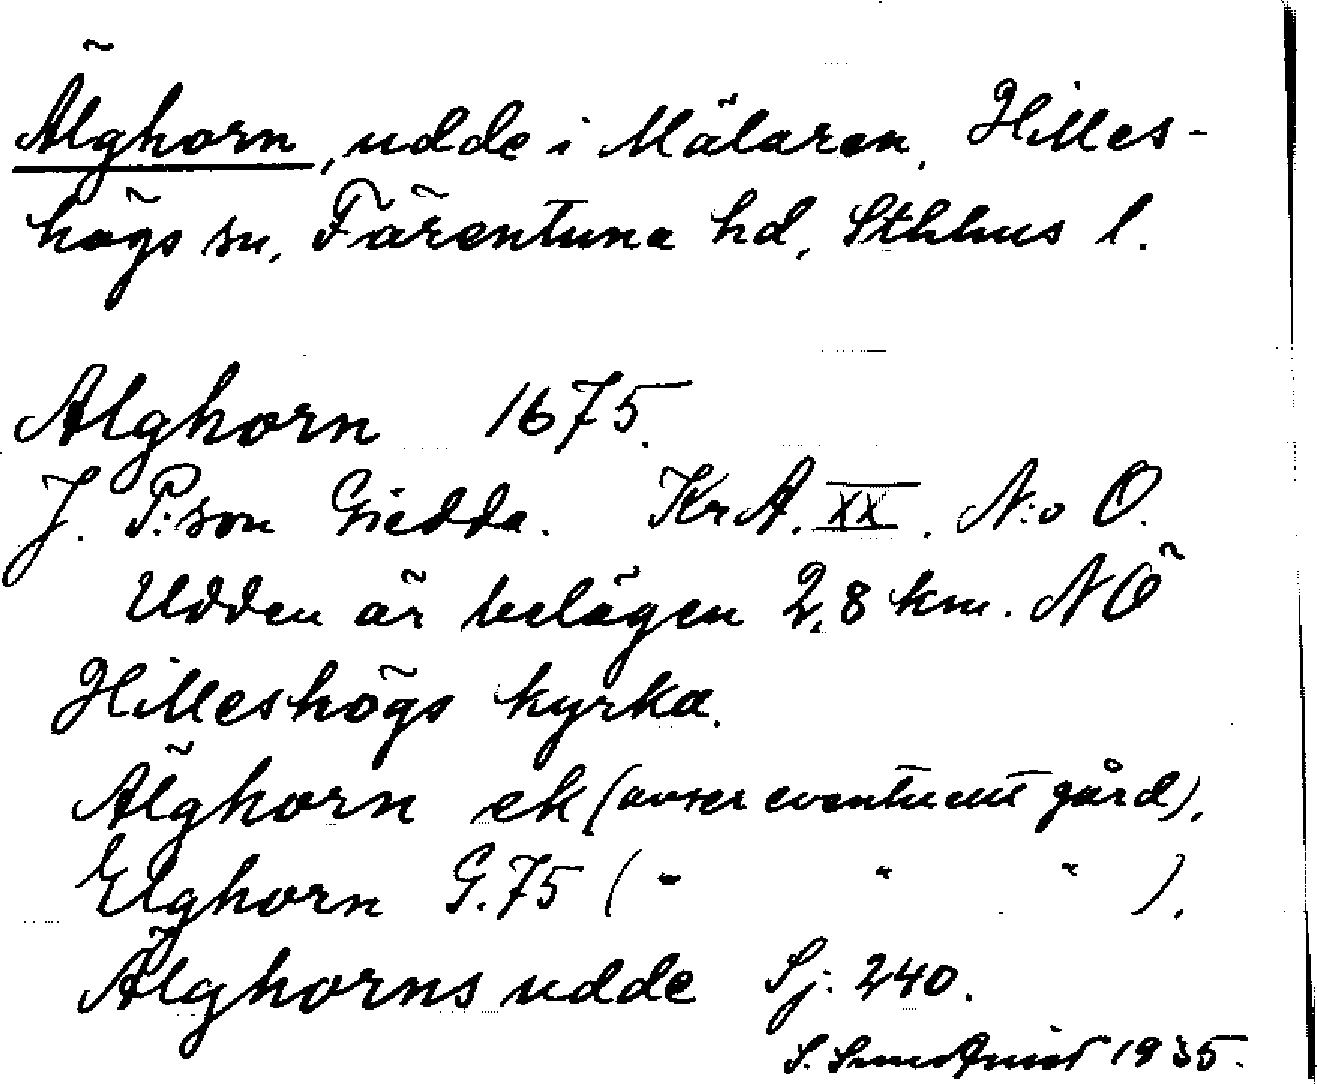 Älghorn, udde i Mälaren, Hilles-
högs sn, Färentuna hd, Sthlms l.
Alghorn 1675.
J. P:son Giedda. KrA. XX. N:o O.
Udden är belägen 2,8 km. NÖ
Hilleshögs kyrka.
Älghorn ek (avser eventuellt gård).
Elghorn G.75 ( - " " ).
Älghorns udde Sj. 240.
S. 1935.